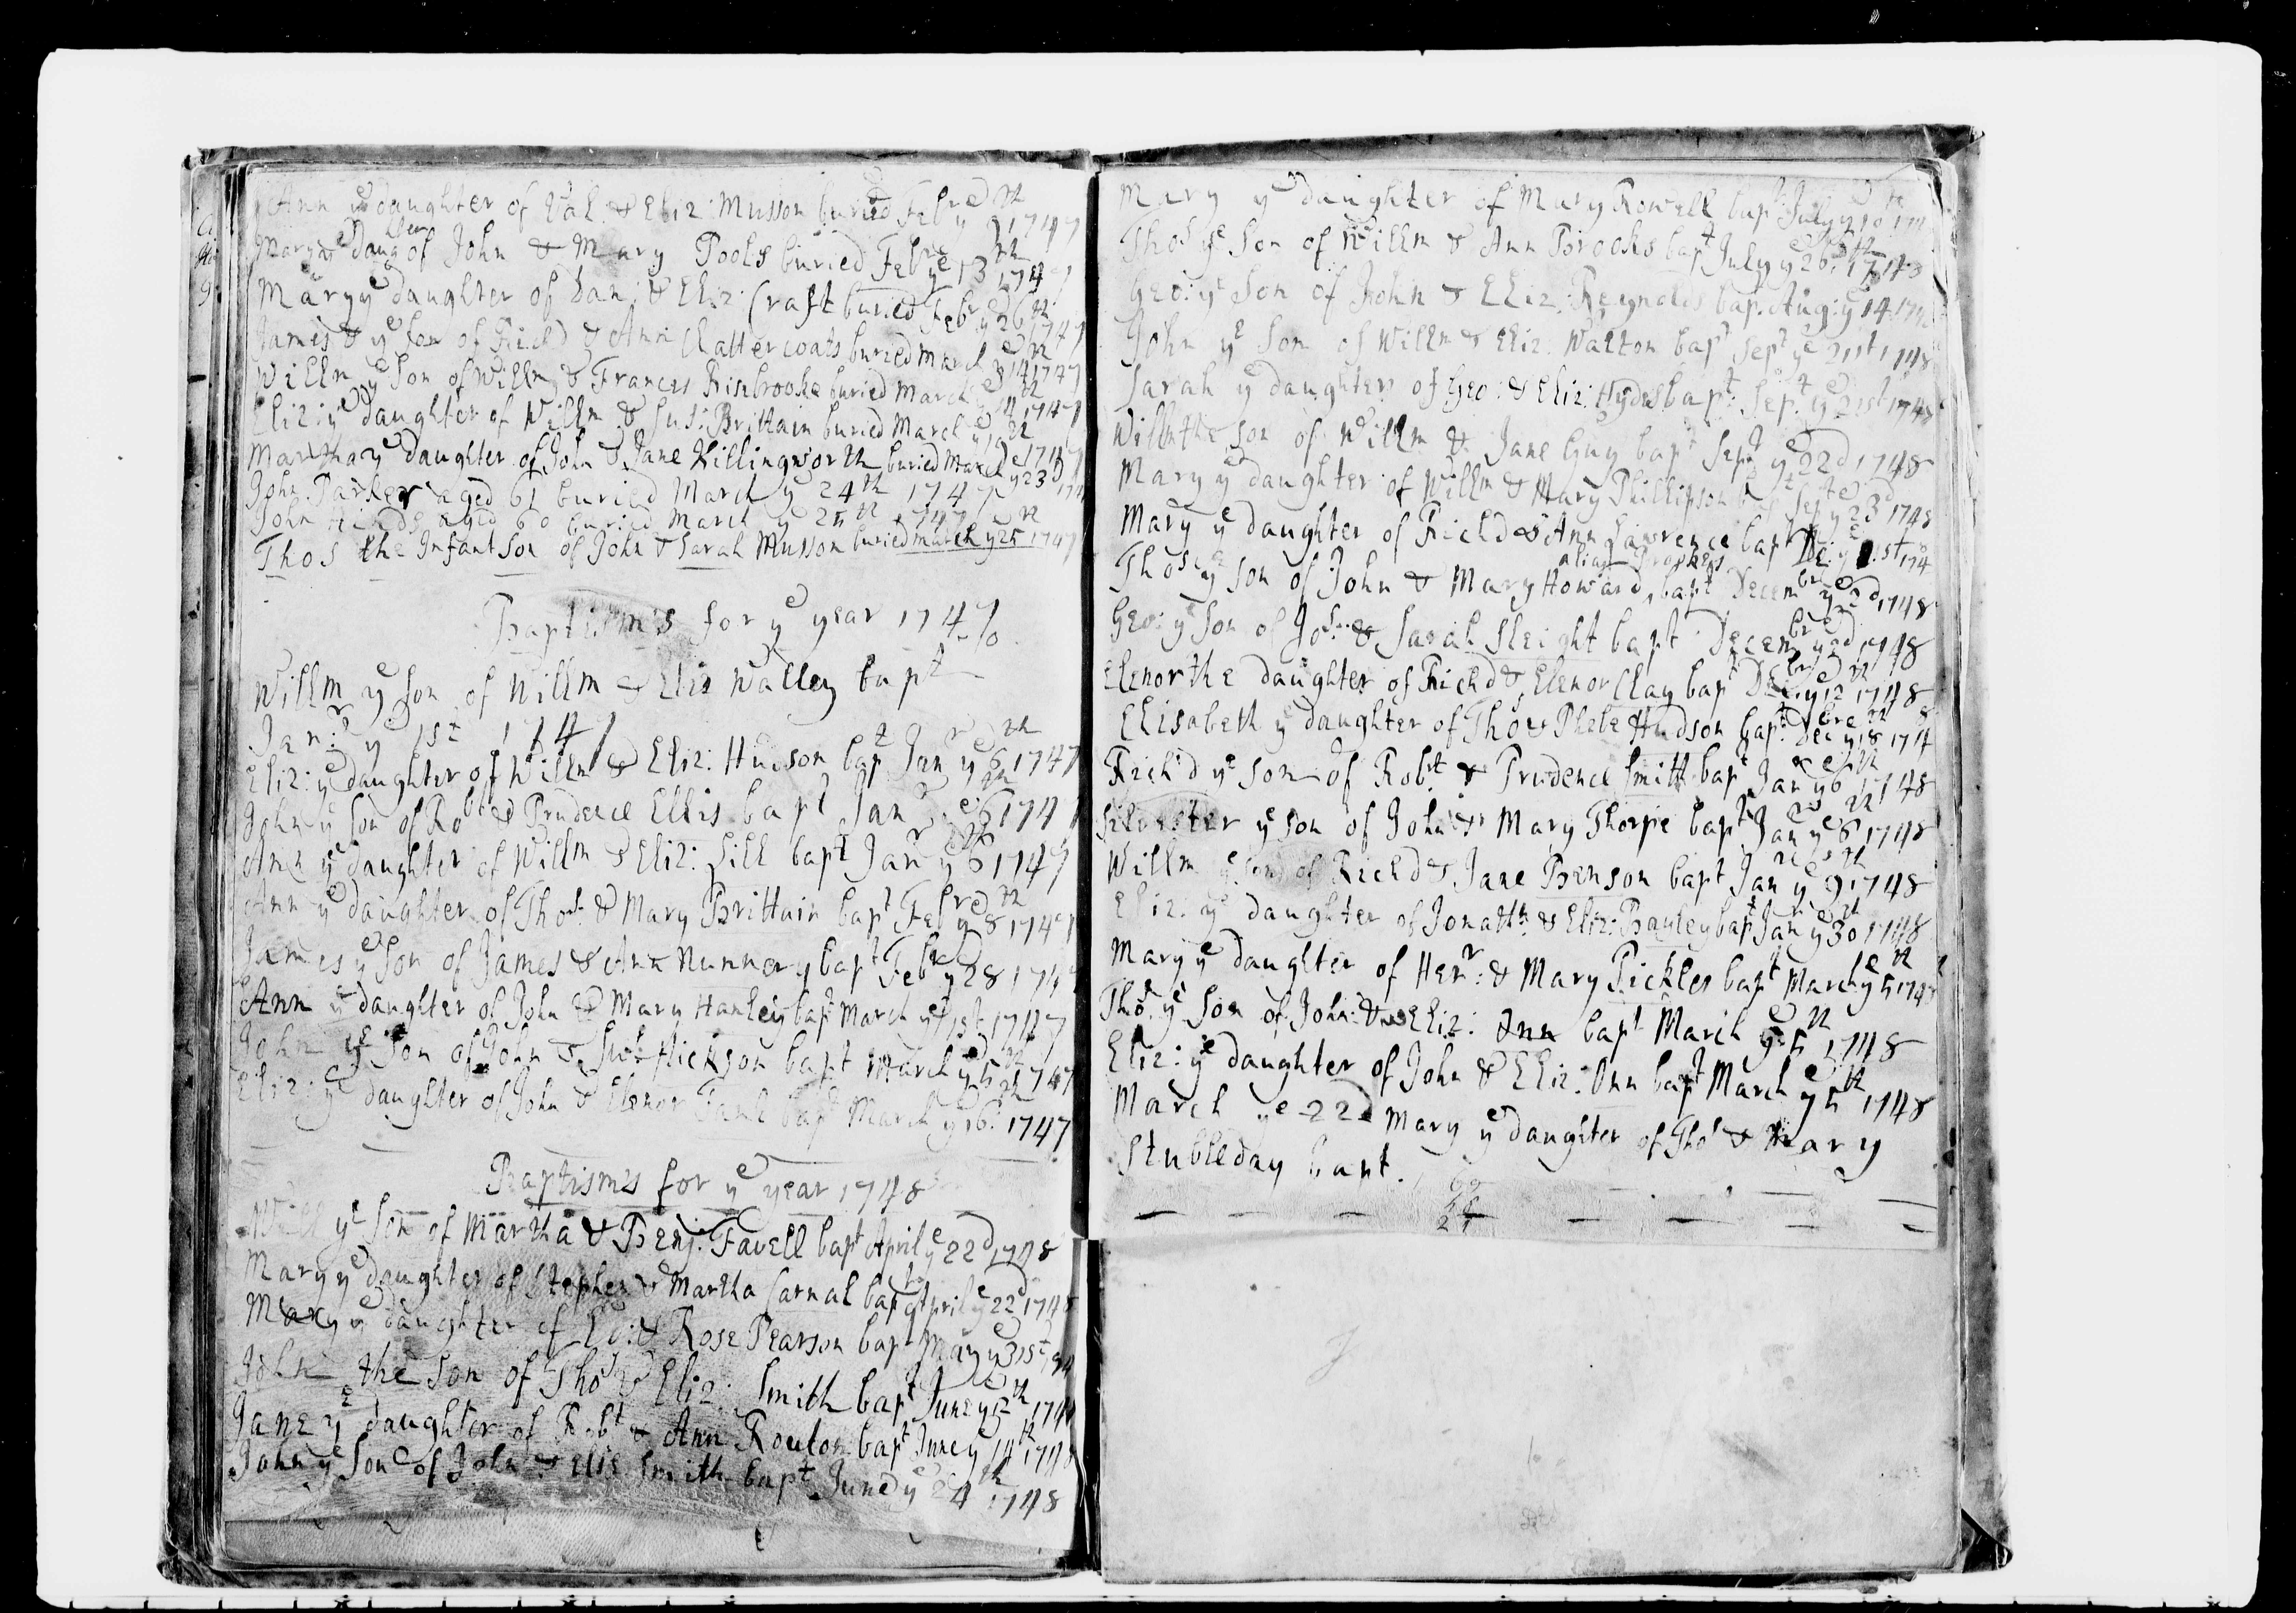 Ann ye daughter of Val: & Eliz: Musson buried Febr ye 9th 1747
Mary ye daughter of John & Mary Pools buried Febr ye 13th 1747
Mary ye daughter of Dan: & Eliz: Craft buried Febr ye 26th 1747
James ye son of Richd & Ann Chattercoats buried March ye 3th 1747
Willm ye Son of Willm & Frances Risbrooke buried March ye 14th 1747
Eliz: ye daughter of Willm & Sus: Brittain buried March ye 19th 1747
Martha ye daughter of John & Jane Killingworth buried March ye 23d 1747
John Parker aged 61 buried March ye 24th 1747
John Hinds aged 60 buried March ye 25th 1747
Thos the Infant son of John & Sarah Musson buried march ye 25th 1747
Baptisms for ye year 1747
Willm ye son of Willm & Eliz Walley bapt
Janr ye 1st 1747
Eliz: ye daughter of Willm & Eliz: Hudson bapt Janr ye 6th 1747
John ye son of Robt & Prudence Ellis bapt Janr ye 6th 1747
Ann ye daughter of Willm & Eliz: Sill bapt Janr ye 6th 1747
Ann ye daughter of Thos: & Mary Brittain bapt Febr ye 8th 1747
James ye son of James & Ann Nunnery bapt Febr ye 28 1747
Ann ye daughter of John & Mary Hanley bapt March ye 1st 1747
John ye Son of John & Sus: Hickson bapt March ye 5th 1747
Eliz: ye daughter of John & Elenor bapt March ye 16th 1747
Baptismes for ye year 1748
Will ye Son of Martha & Benj: Favell bapt April ye 22d 1748
Mary ye daughter of Stephen & Martha Carnal bapt April ye 22d 1748
Mary ye daughter of & Rose Pearson bapt May ye 31st
John the son of Thos & Eliz: Smith bapt June ye 12th 174
Jane ye daughter of Robt & Ann Routon bapt June ye 14th 1748
John ye Son of John & Elis Smith bapt June ye 24th 1748
Mary ye daughter of Mary Rowell bapt July ye 10th
Thos ye Son of Willm & Ann Brooks bapt July ye 26th 1748
Geo: ye Son of John & Eliz: Reynolds bap: Aug: ye 14
John ye Son of Willm & Eliz: Walton bapt Sept ye 21st 1748
Sarah ye daughter of Geo: & Eliz: Hydes bapt: Sept: ye 21st 1748
Willm the son of Willm & Jane Guy bapt Sept ye 22d 1748
Mary ye daughter of Willm & Mary Phillipson bapt Sept ye 23d 1748
Mary ye daughter of Richd & Ann Lawrence bapt De: ye 1st 174
alias
Thos ye son of John & Mary Howard, bapt Decembr ye 2d 1748
Geo: ye Son of Jos: & Sarah Sleight bapt Decembr ye 2d 1748
Elenor the daughter of Richd & Elenor Clay bapt Decbr ye 12th 1748
Elisabeth ye daughter of Tho & Phebe Hudson bapt: Decbr ye 18th 174
Rich'd ye son of Robt & Prudence Smith bapt Janr ye 6th 1748
Silvester ye son of John & Mary Thorpe bapt Janr ye 6th 1748
Willm ye son of Richd & Jane Benson bapt Janr ye 9th 1748
Eliz: ye daughter of Jonath: & Eliz: Bayley bapt Janr ye 30th 1748
Mary ye daughter of Henr: & Mary Pickles bapt March ye 5th 1748
Tho: ye Son of John: & Eliz: Ann bapt March ye 5th 1748
Eliz: ye daughter of John & Eliz: Onn bapt March ye 5th 1748
March ye 22d Mary ye daughter of Thos & Mary
Stubleday bapt.